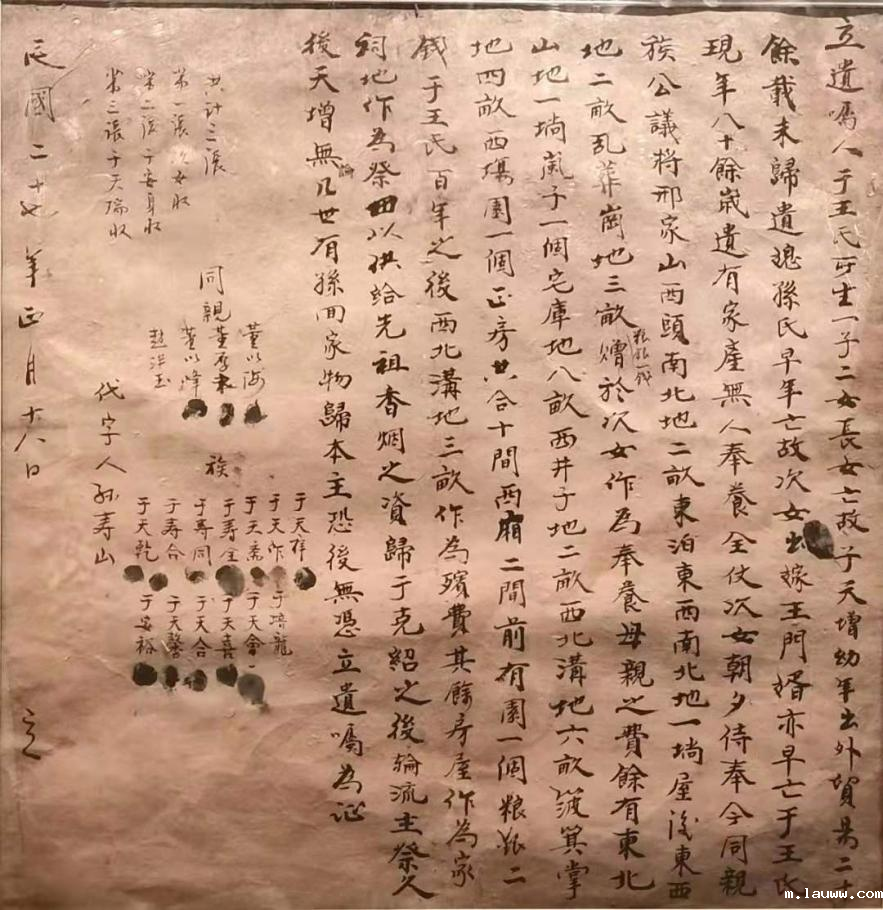 立遺嘱人于王氏所生一子二女長女亡故子天增幼年出外貿易二十
餘載未歸遺媳孫氏早年亡故次女出嫁王門婿亦早亡于王氏
現年八十餘歲遺有家產無人奉養全仗次女朝夕侍奉今同親
族公議將邢家山西頭南北地二畝東泊東西南北地一塲屋後東西
地二畝乱葬崗地三畝粮銀一戔贈於次女作為奉養母親之費餘有東北
山地一塲嵐子一個宅庫地八畝西井子地二畝西北溝地六畝簸箕掌
地四畝西塲園一個正房共合十間西廂二間前有園一個粮銀二
錢于王氏百年之後西北溝地三畝作為殯費其餘房屋作為家
祠地作為祭田以供給先祖香烟之資歸于克紹之後輪流主祭久
後天增無論几世有孫回家物歸本主恐後無憑立遺嘱為证
共计三張
第一張次女收
第二張于安身收
第三張于天瑞收
同親
董以海
董厚本
董以烽
趙洪玉
族
于天祥
于天作
于天喬
于寿全
于寿同
于寿合
于天乾
于培龍
于天會
于天喜
于天合
于天馨
于安裕
代字人孙寿山
民國二十七年正月十八日
立
m.lauww.com